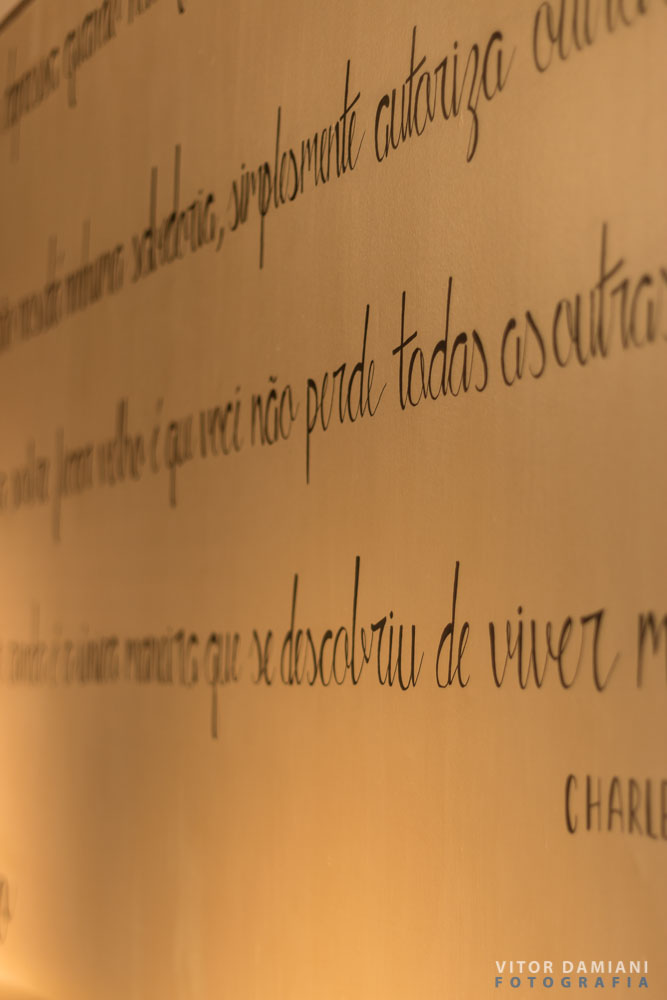 quando
nenhuma sabedoria, simplesmente autoriza
ficar velho é que você não perde todas as outras
é a única maneira que se descobriu de viver m
CHARLE
VITOR DAMIANI
FOTOGRAFIA